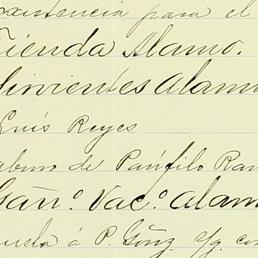 existencia para el
Tienda Alamo.
Sirvientes Alam
Luis Reyes
de Pánfilo Ram
Gañº. Vacº. Alam
á P. Gónz. c/g. con